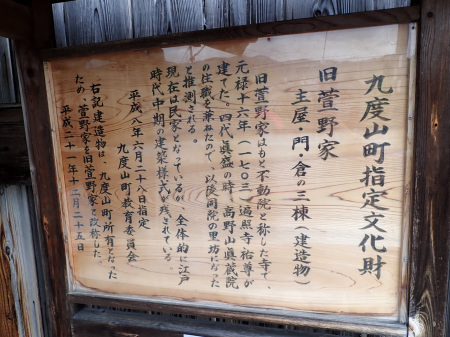 九度山町指定文化財
旧萱野家
主屋・門・倉の三棟（建造物）
旧萱野家はもと不動院と称した寺で、
元禄十六年（一七〇三）遍照寺祐尊が
建てた。四代真盛の時、高野山真蔵院
の住職を兼ねたので、以後同院の里坊になった
と推測される。
現在は民家となっているが、全体的に江戸
時代中期の建築様式が残されている。
平成八年六月二十八日指定
九度山町教育委員会
右記建造物は、九度山町所有となった
ため、萱野家を旧萱野家と改称した。
平成二十一年十二月二十五日